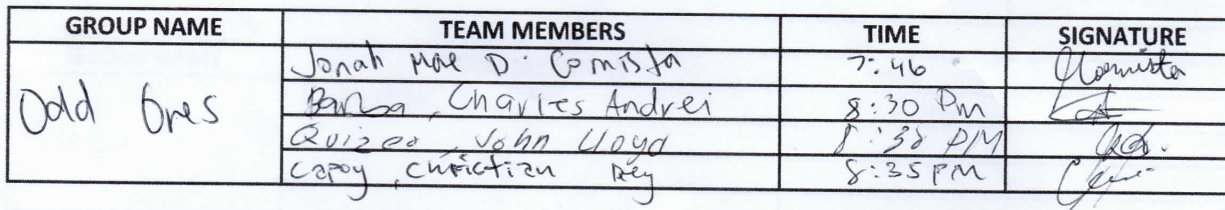 GROUP NAME TEAM MEMBERS TIME SIGNATURE
Odd Ones
Jonah Mae D. Comista 7:46
Barba, Charles Andrei 8:30 PM
John Lloyd 8:38 PM
Capoy, Christian Rey 8:35 PM